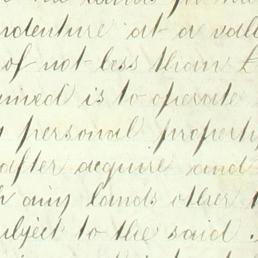 ndenture at a val
of not less than £
is to operate
personal property
after acquire and
any lands other
ubject to the said